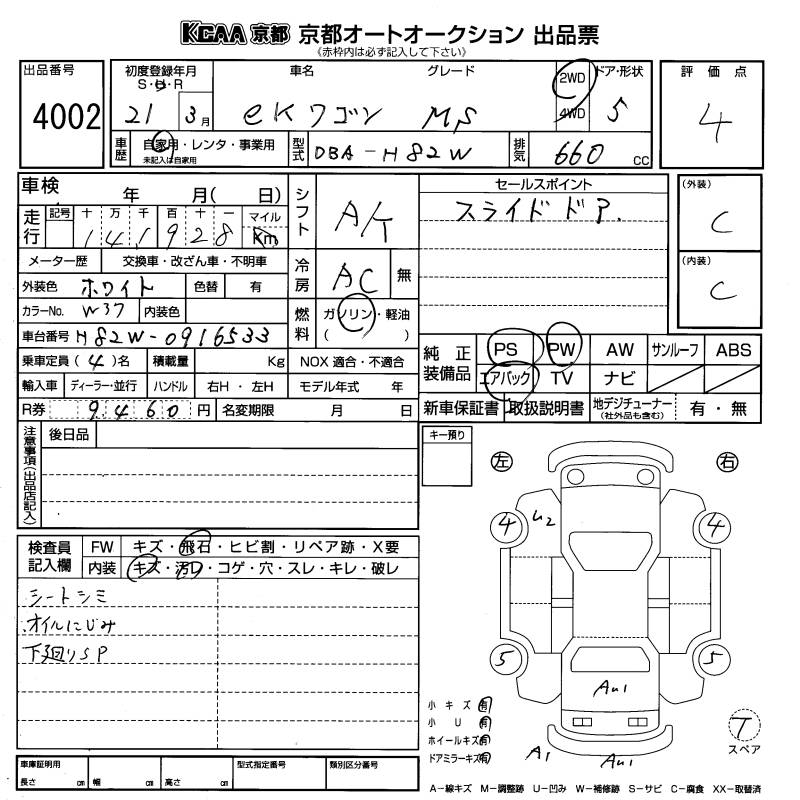 KCAA 京都 京都オートオークション 出品票
《赤枠内は必ず記入して下さい》
出品番号
4002
初度登録年月
S・H・R
21 3月
車名 グレード
ekワゴン MS
2WD
4WD
ドア・形状
5
評価点
4
車歴
自家用・レンタ・事業用
未記入は自家用
型式
DBA-H82W
排気
660 cc
車検 年 月( 日)
走行
記号 十 万 千 百 十 一 マイル
1 4 1 9 2 8 Km
シフト
A/T
セールスポイント
スライドドア.
(外装)
C
(内装)
C
メーター歴 交換車・改ざん車・不明車
冷房
AC 無
外装色 ホワイト 色替 有
カラーNo. W37 内装色
燃料
ガソリン・軽油
( )
車台番号 H82W-0916533
乗車定員 (4)名 積載量 Kg NOX 適合・不適合
輸入車 ディーラー・並行 ハンドル 右H・左H モデル年式 年
R券 9460円 名変期限 月 日
純正装備品
PS PW AW サンルーフ ABS
エアバック TV ナビ
新車保証書 取扱説明書 地デジチューナー (社外品も含む) 有・無
注意事項(出品店記入)
後日品
キー預り
左 右
検査員記入欄
FW キズ・飛石・ヒビ割・リペア跡・X要
内装 キズ・汚れ・コゲ・穴・スレ・キレ・破レ
シートシミ
オイルにじみ
下廻りSP
U2
4 4
5 5
AU1
小キズ 有
小U 有
ホイールキズ 有
ドアミラーキズ 有
A1 AU1
T
スペア
車庫証明用
長さ cm 幅 cm 高さ cm
型式指定番号 類別区分番号
A-線キズ M-調整跡 U-凹み W-補修跡 S-サビ C-腐食 XX-取替済